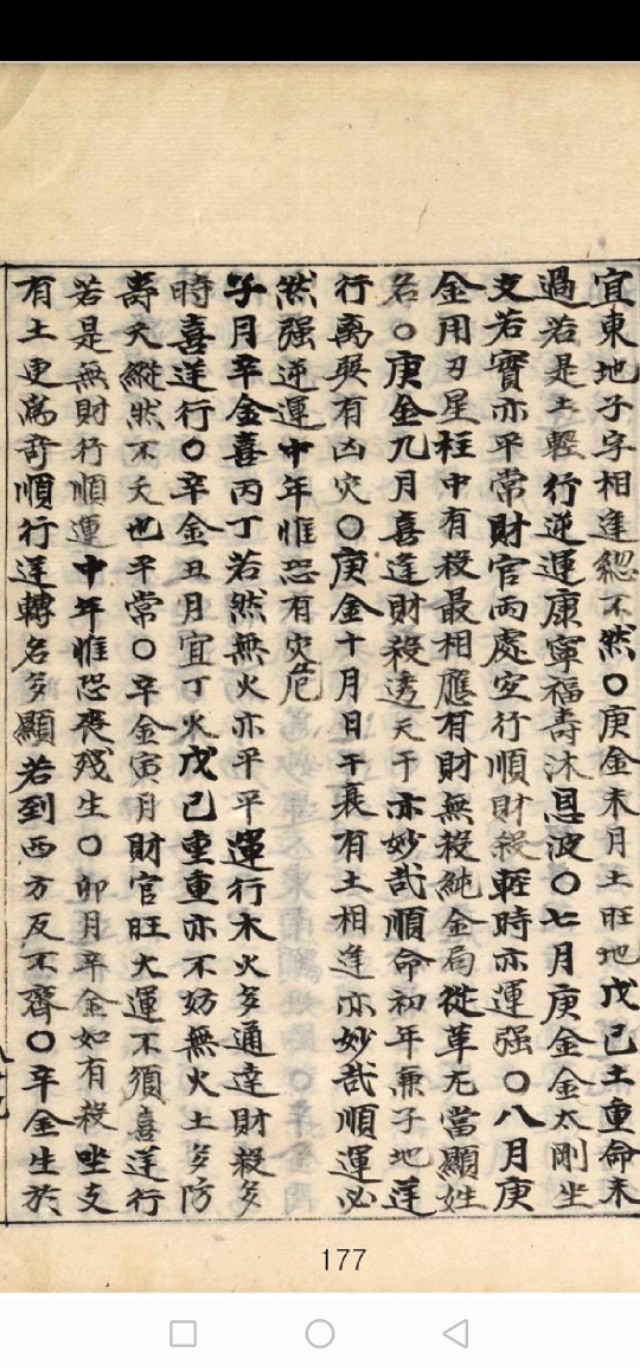 宜東地子字相逢総不然○庚金未月土旺地戊己土重命未
過若是土輕行逆運康寧福壽沐恩波○七月庚金金太剛坐
支若寳亦平常財官両處空行順財殺輕時亦運强○八月庚
金用刃星柱中有殺最相應有財無殺純金局從革尤當顯姓
名○庚金九月喜逢財殺透天干亦妙哉順命初年兼子地逆
行离巽有凶灾○庚金十月日干衰有土相逢亦妙哉順運必
然强逆運中年惟恐有灾危
子月辛金喜丙丁若然無火亦平平運行木火多通達財殺多
時喜逆行○辛金丑月宜丁火戊己重重亦不妨無火土多防
壽夭縱然不夭也平常○辛金寅月財官旺大運不須喜逆行
若是無財行順運中年惟恐喪殘生○卯月辛金如有殺坐支
有土更為奇順行逆轉名多顯若到西方反不齊○辛金生於
177